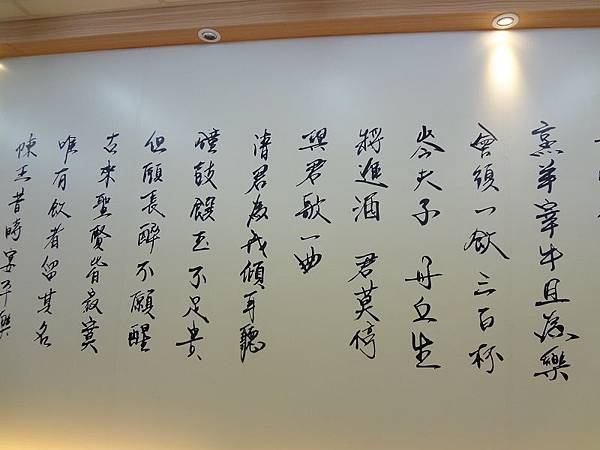 烹羊宰牛且為樂
會須一飲三百杯
岑夫子 丹丘生
將進酒 君莫停
與君歌一曲
請君為我傾耳聽
鐘鼓饌玉不足貴
但願長醉不願醒
古來聖賢皆寂寞
唯有飲者留其名
陳王昔時宴平樂